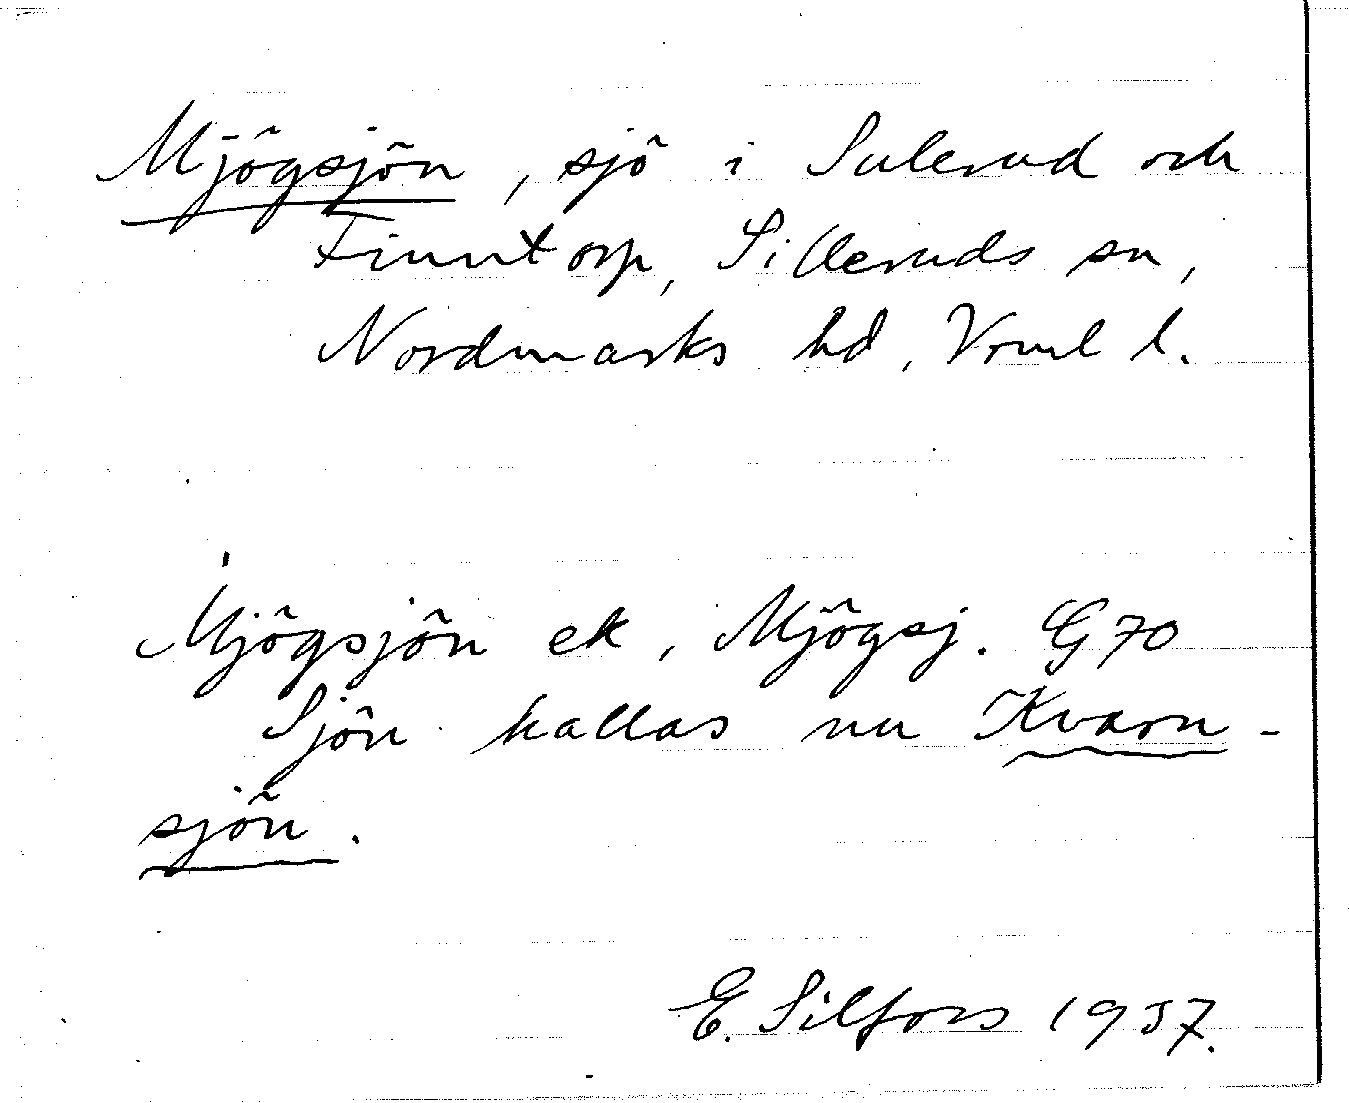 Mjögsjön, sjö i Sulerud och
Finntorp, Silleruds sn,
Nordmarks hd, Vrml l.
Mjögsjön ek, Mjögsj. G70
Sjön kallas nu Kvarn-
sjön.
E. Silfors 1957.